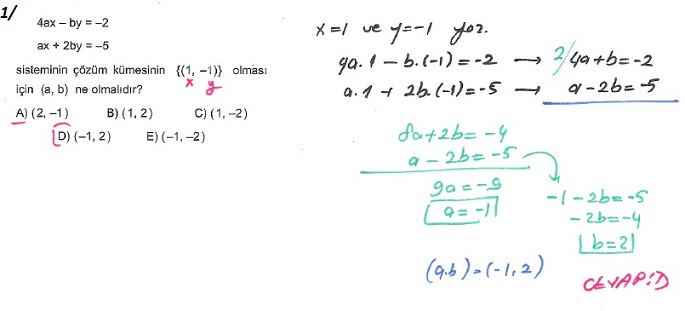 1/
4ax – by = –2
ax + 2by = –5
sisteminin çözüm kümesinin {(1, –1)} olması
x y
için (a, b) ne olmalıdır?
A) (2, –1) B) (1, 2) C) (1, –2)
D) (–1, 2) E) (–1, –2)
x=1 ve y=-1 yaz.
4a.1 - b.(-1) = -2 → 2/ 4a+b=-2
a.1 + 2b.(-1) = -5 → a-2b=-5
8a+2b=-4
a-2b=-5
9a=-9
a=-1
-1-2b=-5
-2b=-4
b=2
(a.b)=(-1,2)
CEVAP:D